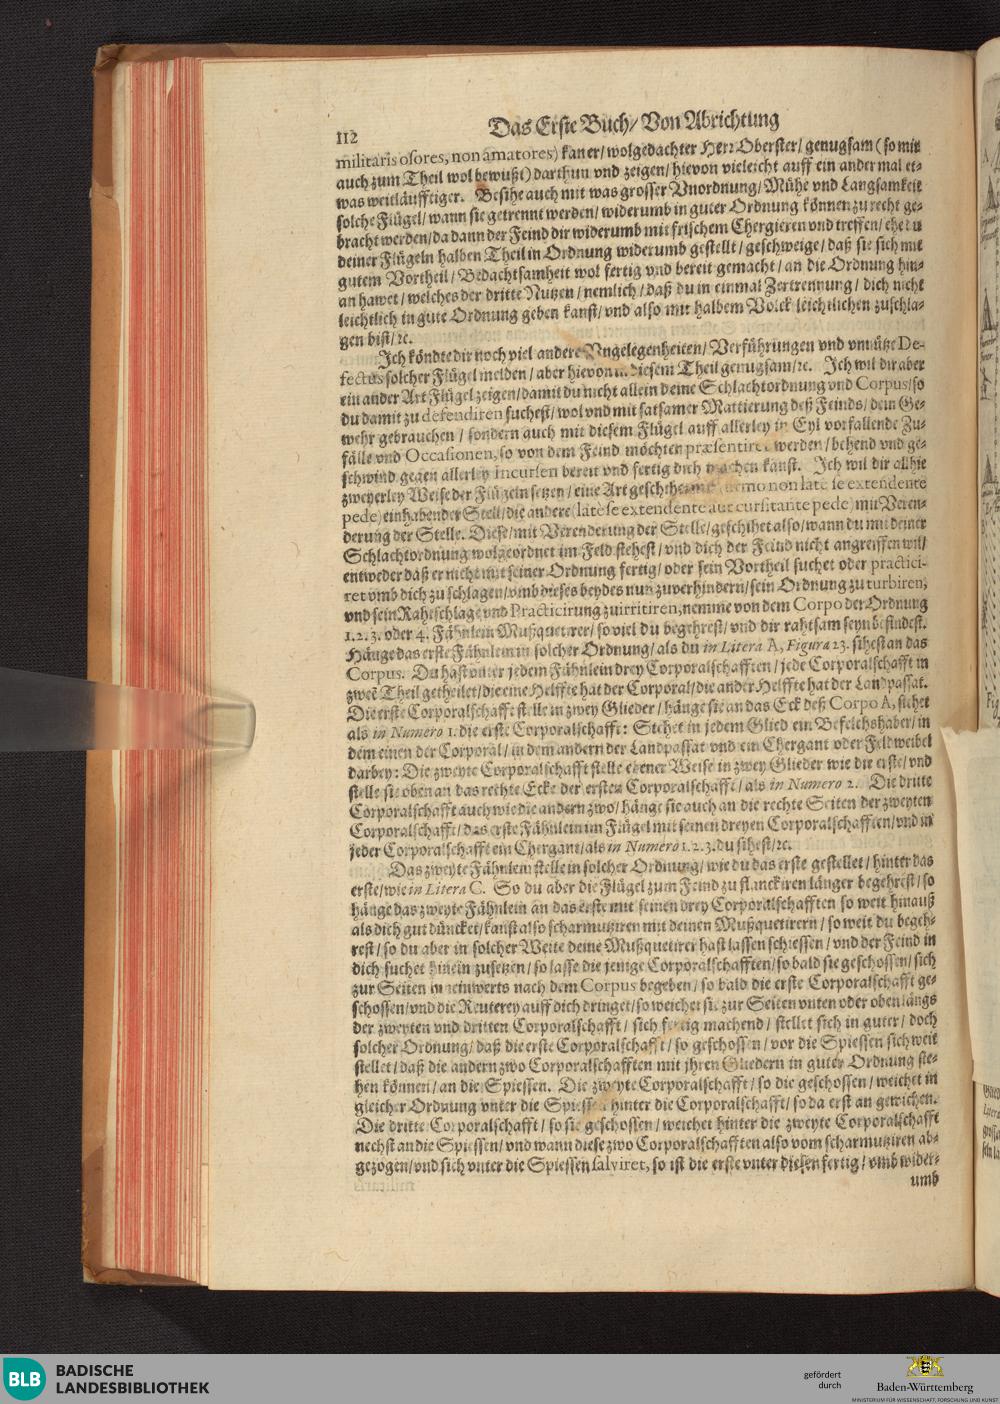 112
Das Erste Buch/ Von Abrichtung
militaris osores, non amatores) kan er/ wolgedachter Herr Oberster/ genugsam (so mir
auch zum Theil wol bewußt) darthun vnd zeigen/ hievon vieleicht auff ein andermal et-
was weitläufftiger. Besihe auch mit was grosser Vnordnung/ Mühe vnd Langsamkeit
solche Flügel/ wann sie getrennt werden/ widerumb in guter Ordnung können zu recht ge-
bracht werden/ da dann der Feind dir widerumb mit frischem Chergieren vnd treffen/ ehe du
deiner Flügeln halben Theil in Ordnung widerumb gestellt/ geschweige/ daß sie sich mit
gutem Vortheil/ Bedachtsamheit wol fertig vnd bereit gemacht/ an die Ordnung hin-
an hawet/ welches der dritte Nutzen/ nemlich/ daß du in einmal Zertrennung/ dich nicht
leichtlich in gute Ordnung geben kanst/ vnd also mit halbem Volck leichtlichen zuschla-
gen bist/ ꝛc.
Ich köndte dir noch viel andere Vngelegenheiten/ Verführungen vnd vnnütze De-
fectus solcher Flügel melden/ aber hievon in diesem Theil genugsam/ ꝛc. Ich wil dir aber
ein ander Art Flügel zeigen/ damit du nicht allein deine Schlachtordnung vnd Corpus/ so
du damit zu defendiren suchest/ wol vnd mit satsamer Mattierung deß Feinds/ dein Ge-
wehr gebrauchen/ sondern auch mit diesem Flügel auff allerley in Eyl vorfallende Zu-
fälle vnd Occasionen, so von dem Feind möchten præsentiret werden/ behend vnd ge-
schwind gegen allerley Incursen bereit vnd fertig dich machen kanst. Ich wil dir allhie
zweyerley Weise der Flügeln setzen/ eine Art geschihet mit non late se extendente
pede) einhabender Stell/ die andere (late se extendente aut cursitante pede) mit Veren-
derung der Stelle. Diese/ mit Verenderung der Stelle/ geschihet also/ wann du mit deiner
Schlachtordnung wolgeordnet im Feld stehest/ vnd dich der Feind nicht angreiffen wil/
entweder daß er nicht mit seiner Ordnung fertig/ oder sein Vortheil suchet oder practici-
ret vmb dich zu schlagen/ vmb dieses beydes nun zuverhindern/ sein Ordnung zu turbiren,
vnd sein Rahtschlage vnd Practicirung zu irritiren, nemme von dem Corpo der Ordnung
1. 2. 3. oder 4. Fähnlein Mußquetirer/ so viel du begehrest/ vnd dir rahtsam seyn befindest.
Hänge das erste Fähnlein in solcher Ordnung/ als du in Litera A, Figura 23. sihest an das
Corpus. Du hast vnter jedem Fähnlein drey Corporalschafften/ jede Corporalschafft in
zween Theil getheilet/ die eine Helffte hat der Corporal/ die ander Helffte hat der Landpassat.
Die erste Corporalschafft stelle in zwey Glieder/ hänge sie an das Eck deß Corpo A, sihet
als in Numero 1. die erste Corporalschafft: Stehet in jedem Glied ein Befelchshaber/ in
dem einen der Corporal/ in dem andern der Landpassat vnd ein Chergant oder Feldweibel
darbey: Die zweyte Corporalschafft stelle ebener Weise in zwey Glieder wie die erste/ vnd
stelle sie oben an das rechte Ecke der ersten Corporalschafft/ als in Numero 2. Die dritte
Corporalschafft auch wie die andern zwo/ hänge sie auch an die rechte Seiten der zweyten
Corporalschafft/ das erste Fähnlein im Flügel mit seinen dreyen Corporalschafften/ vnd in
jeder Corporalschafft ein Chergant/ als in Numero 1. 2. 3. du sihest/ ꝛc.
Das zweyte Fähnlein stelle in solcher Ordnung/ wie du das erste gestellet/ hinter das
erste/ wie in Litera C. So du aber die Flügel zum Feind zu flanckiren länger begehrest/ so
hänge das zweyte Fähnlein an das erste mit seinen drey Corporalschafften so weit hinauß
als dich gut düncket/ kanst also scharmutziren mit deinen Mußquetirern/ so weit du begeh-
rest/ so du aber in solcher Weite deine Mußquetirer hast lassen schiessen/ vnd der Feind in
dich suchet hinein zusetzen/ so lasse die jenige Corporalschafften/ so bald sie geschossen/ sich
zur Seiten hineinwerts nach dem Corpus begeben/ so bald die erste Corporalschafft ge-
schossen/ vnd die Reuterey auff dich dringet/ so weichet sie zur Seiten vnten oder oben längs
der zweyten vnd dritten Corporalschafft/ sich fertig machend/ stellet sich in guter/ doch
solcher Ordnung/ daß die erste Corporalschafft/ so geschossen/ vor die Spiessen sich weit
stellet/ daß die andern zwo Corporalschafften mit jhren Gliedern in guter Ordnung ste-
hen können/ an die Spiessen. Die zweyte Corporalschafft/ so die geschossen/ weichet in
gleicher Ordnung vnter die Spiessen hinter die Corporalschafft/ so da erst an gewichen.
Die dritte Corporalschafft/ so sie geschossen/ weichet hinter die zweyte Corporalschafft
nechst an die Spiessen/ vnd wann diese zwo Corporalschafften also vom scharmutziren ab-
gezogen/ vnd sich vnter die Spiessen salviret, so ist die erste vnter diesen fertig/ vmb wider-
umb
BLB
BADISCHE
LANDESBIBLIOTHEK
gefördert
durch
Baden-Württemberg
MINISTERIUM FÜR WISSENSCHAFT, FORSCHUNG UND KUNST